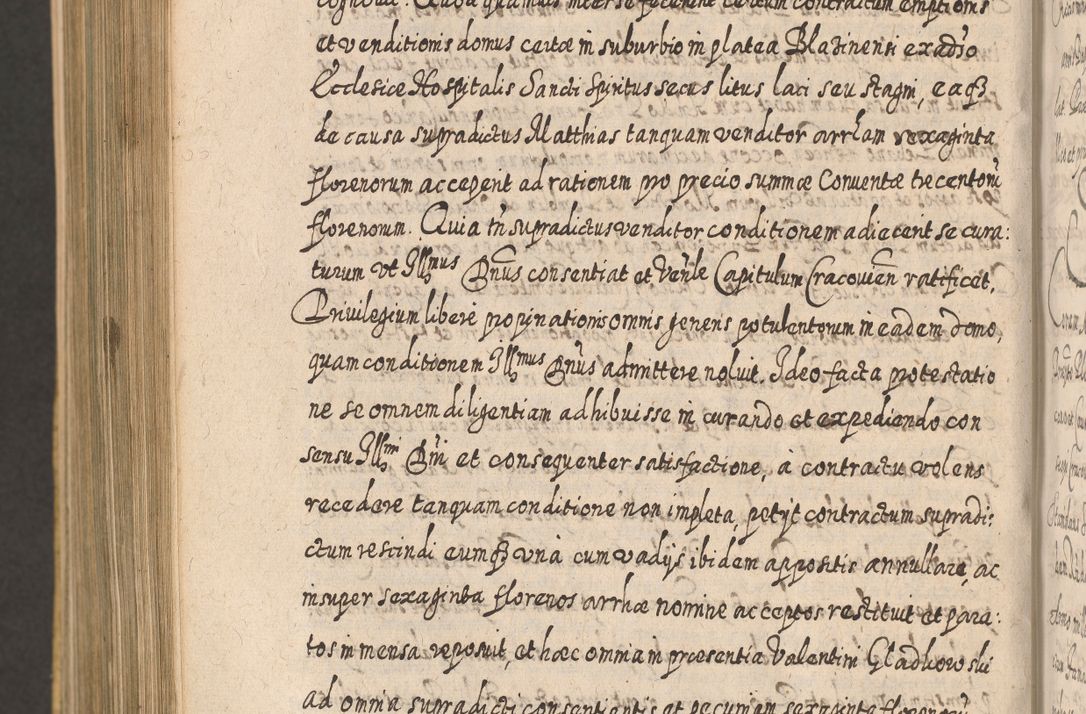 cognovit. Quod quamvis inter se fecerint certum contractum emptionis
et venditionis domus certæ in suburbio in platea Blazinensi ex adv̄so
Ecclesiæ Hospitalis Sancti Spiritus secus litus laci seu stagni, eaq3
de causa supradictus Matthias tanquam venditor arrham sexaginta
florenorum acceperit ad rationem pro precio summæ Conventæ trecentorū
florenorum. Quia tn̄ supradictus venditor conditionem adiecerit se cura:
turum vt Illmus Dnus consentiat et Venle Capitulum Cracovien ratificet,
Privilegium liberè propinationis omnis generis potulentorum in eadem domo,
quam conditionem Illmus Dnus admittere noluit. Ideo facta protestatio
ne se omnem diligentiam adhibuisse in curando et expediendo con
sensu Illmi Dni et consequenter satisfactione, à contractu volens
recedere tanquam conditione non impleta, petijt contractum supradi:
ctum rescindi eumq3 vnà cum vadijs ibidem appositis annullare, ac
insuper sexaginta florenos arrhæ nomine acceptos restituit et para:
tos in mensa reposuit, et hæc omnia in præsentia Valentini Gladkowski
ad omnia supradicti consentientis et pecuniam sexaginta florenorū